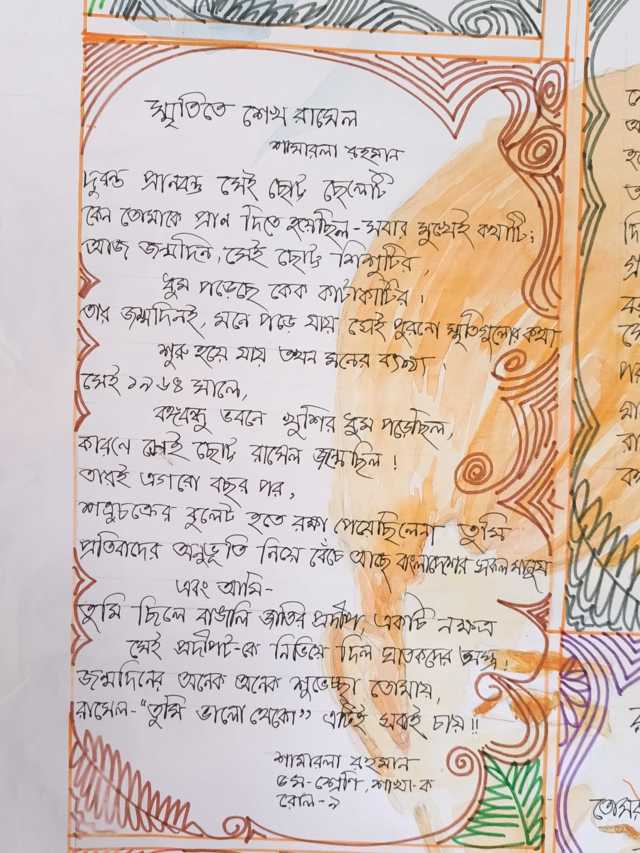 স্মৃতিতে শেখ রাসেল
শামারলা রহমান
দুরন্ত প্রানবন্ত সেই ছোট্ট ছেলেটি
কেন তোমাকে প্রান দিতে হয়েছিল-সবার মুখেই কথাটি;
আজ জন্মদিনে, সেই ছোট্ট শিশুটির
ধুম পড়েছে কেক কাটাকাটির।
তার জন্মদিনই, মনে পড়ে যায় সেই পুরনো স্মৃতিগুলোর কথা
শুরু হয়ে যায় তখন মনের ব্যথা।
সেই ১৯৬৪ সালে,
বঙ্গবন্ধু ভবনে খুশির ধুম পড়েছিল,
কারনে সেই ছোট্ট রাসেল জন্মেছিল!
তারই এগারো বছর পর,
শত্রুচক্রের বুলেট হতে রক্ষা পেয়েছিলেনা তুমি
প্রতিবাদের অনুভূতি নিয়ে বেঁচে আছে বাংলাদেশের সকল মানুষ
এবং আমি-
তুমি ছিলে বাঙালি জাতির প্রদীপ, একটি নক্ষত্র
সেই প্রদীপটি-কে নিভিয়ে দিল ঘাতকদের অস্ত্র!
জন্মদিনের অনেক অনেক শুভেচ্ছা তোমায়,
রাসেল-"তুমি ভালো থেকো" এটিই সবাই চায়!!
শামারলা রহমান
৬ষ্ঠ-শ্রেণি, শাখা-ক
রোল-৯